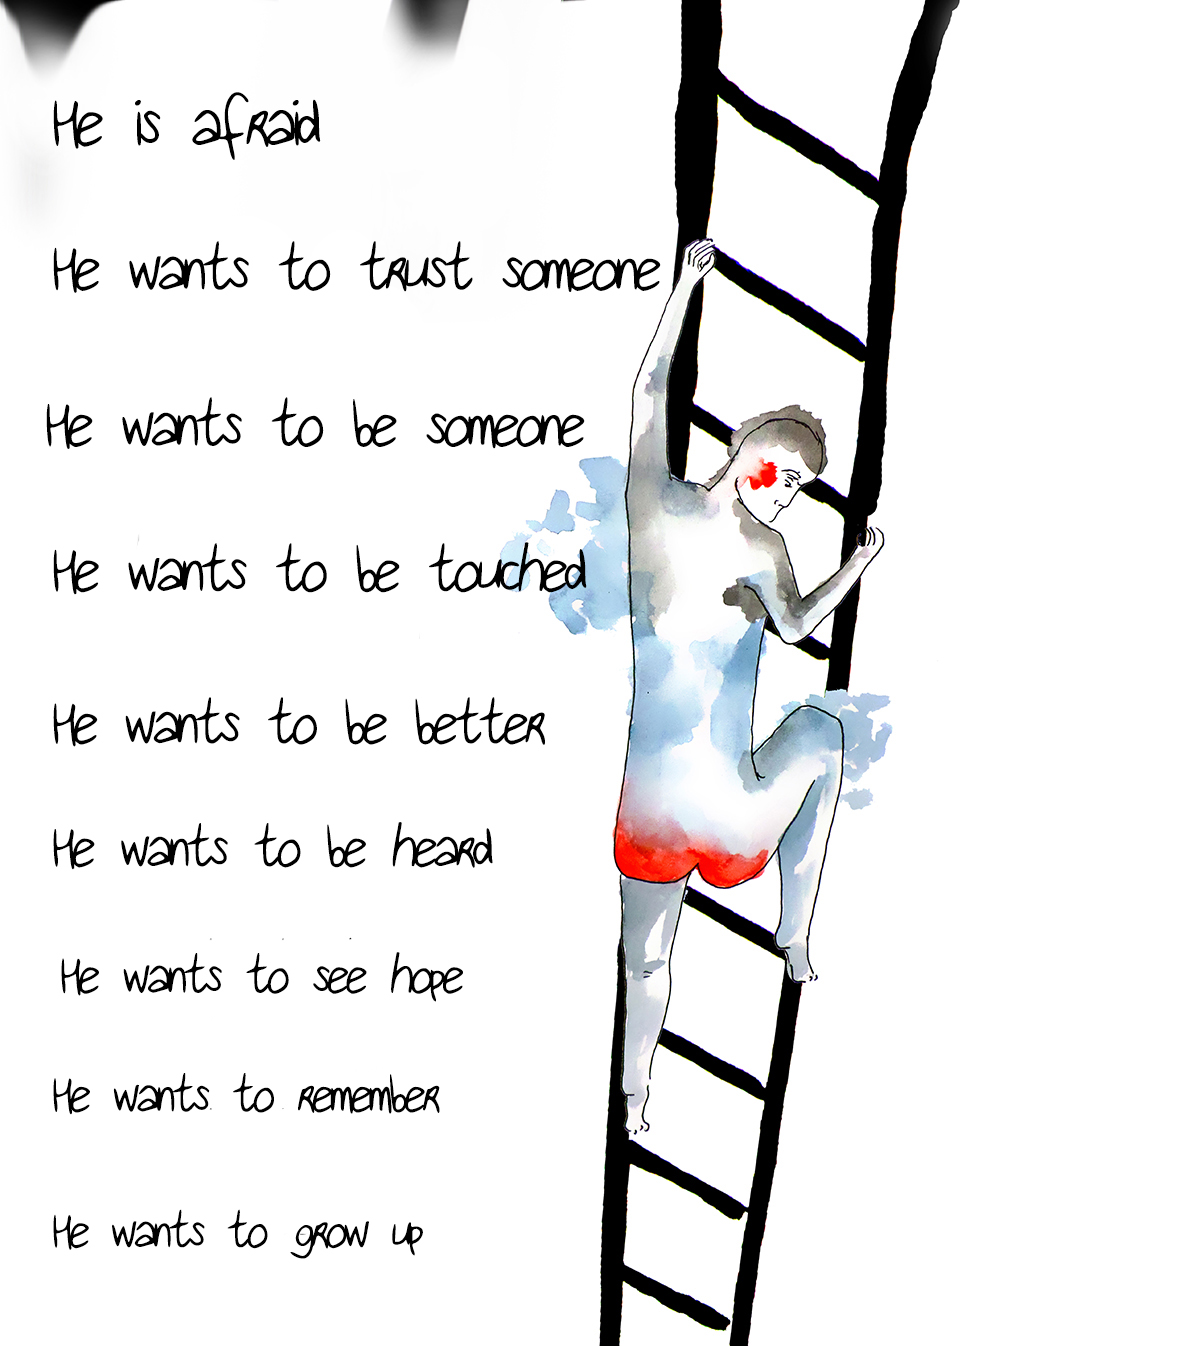 He is afraid
He wants to trust someone
He wants to be someone
He wants to be touched
He wants to be better
He wants to be heard
He wants to see hope
He wants to remember
He wants to grow up